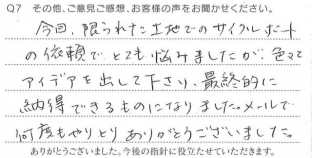 Q7 その他、ご意見ご感想、お客様の声をお聞かせください。
今回、限られた土地でのサイクルポート
の依頼でとても悩みましたが、色々て
アイデアを出して下さり、最終的に
納得できるものになりました。メールで
何度もやりとりありがとうございました。
ありがとうございました。今後の指針に役立たせていただきます。